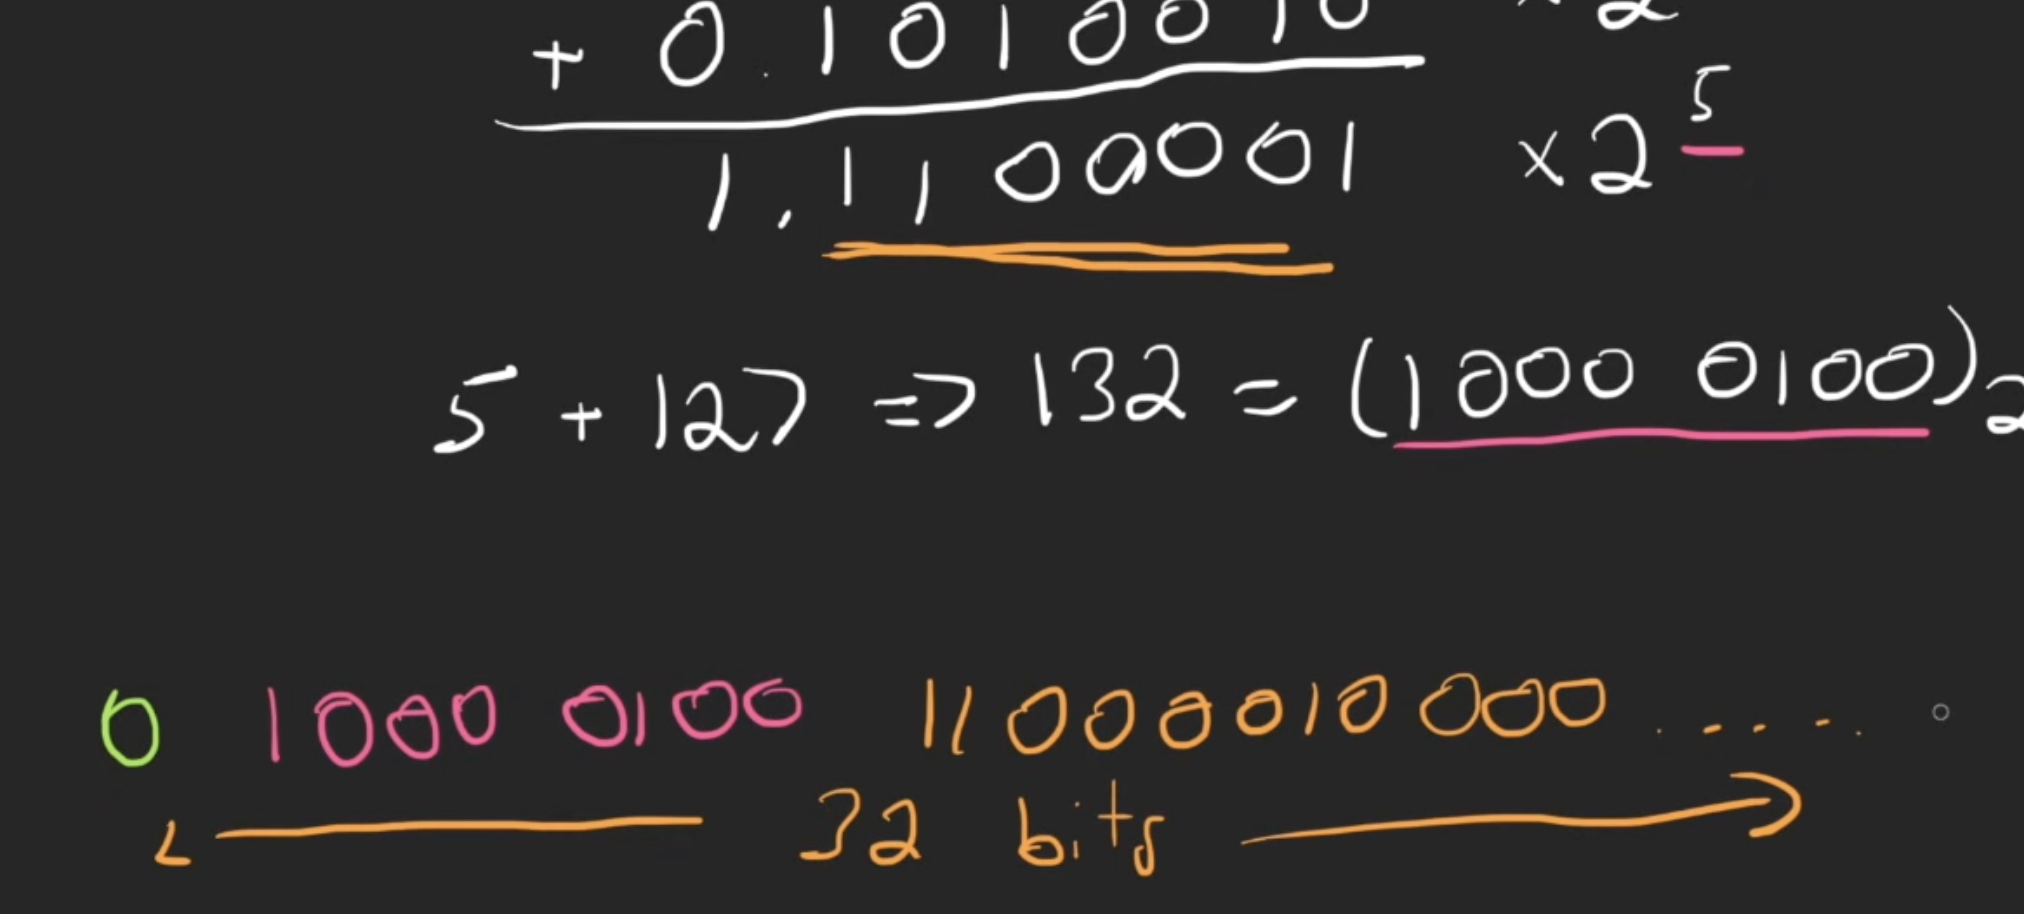 + 0.10100010 × 2
1.1100001 × 2^5
5 + 127 => 132 = (1000 0100)2
0 1000 0100 11000010000......
32 bits